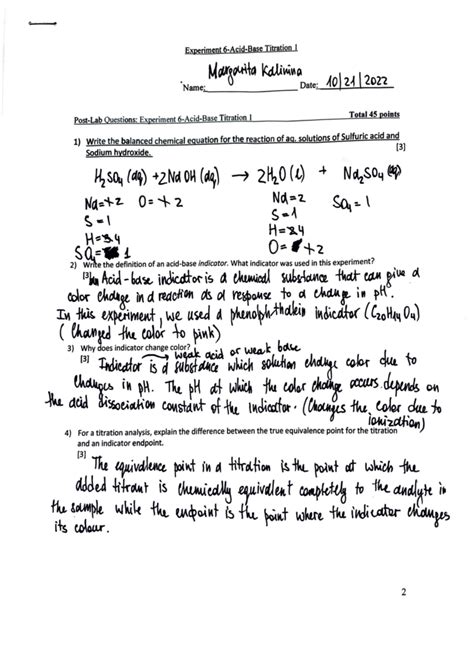 Experiment 6-Acid-Base Titration 1
Margarita Kalinina
Name: Date: 10/21/2022
Post-Lab Questions: Experiment 6-Acid-Base Titration 1 Total 45 points
1) Write the balanced chemical equation for the reaction of aq. solutions of Sulfuric acid and
Sodium hydroxide. [3]
H2SO4 (aq) + 2NaOH (aq) → 2H2O (l) + Na2SO4 (aq)
Na = 2 O = 2 Na = 2 SO4 = 1
S = 1 S = 1
H = 4 H = 4
SO4 = 1 O = 2
2) Write the definition of an acid-base indicator. What indicator was used in this experiment?
[3] Acid-base indicator is a chemical substance that can give a
color change in a reaction as a response to a change in pH.
In this experiment, we used a phenophthalein indicator (C20H14O4)
(Changed the color to pink)
3) Why does indicator change color?
→ weak acid or weak base
[3] Indicator is a substance which solution change color due to
changes in pH. The pH at which the color change occurs depends on
the acid dissociation constant of the indicator. (Changes the color due to
ionization)
4) For a titration analysis, explain the difference between the true equivalence point for the titration
and an indicator endpoint.
[3]
The equivalence point in a titration is the point at which the
added titrant is chemically equivalent completely to the analyte in
the sample while the endpoint is the point where the indicator changes
its colour.
2